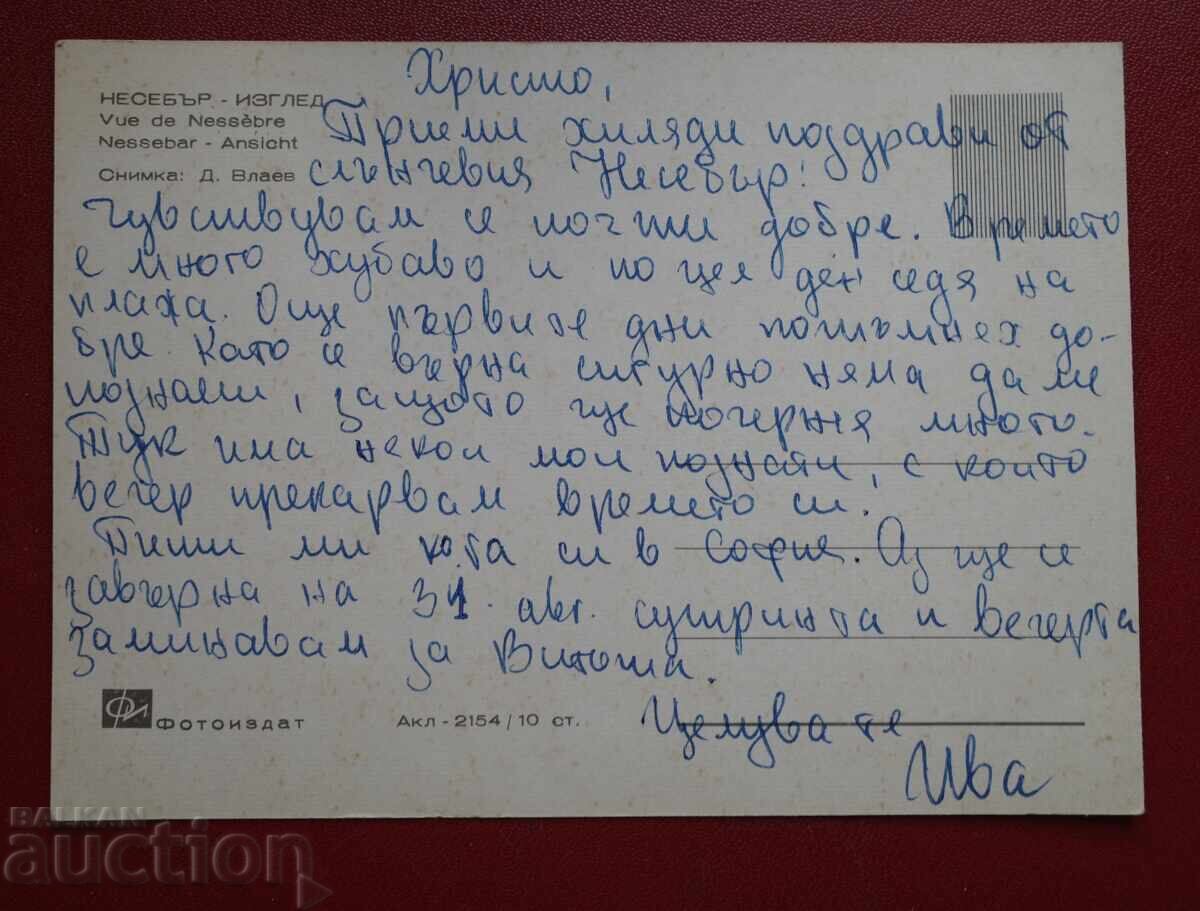 Христо,
НЕСЕБЪР - ИЗГЛЕД
Vue de Nessèbre
Nessebar - Ansicht
Снимка: Д. Влаев
Приеми хиляди поздрави от
слънчевия Несебър!
Чувствувам се почти добре. Времето
е много хубаво и по цел ден седя на
плажа. Още първите дни потъмнех до-
бре. Като се върна сигурно няма да ме
познаеш, защото ще почерня много.
Тук има некои мои познати, с които
вечер прекарвам времето си.
Пиши ми кога си в София. Аз ще се
завърна на 31. авг. сутринта и вечерта
заминавам за Витоша.
Целува те
Ива
Фотоиздат
Акл - 2154/10 ст.
BALKAN
auction